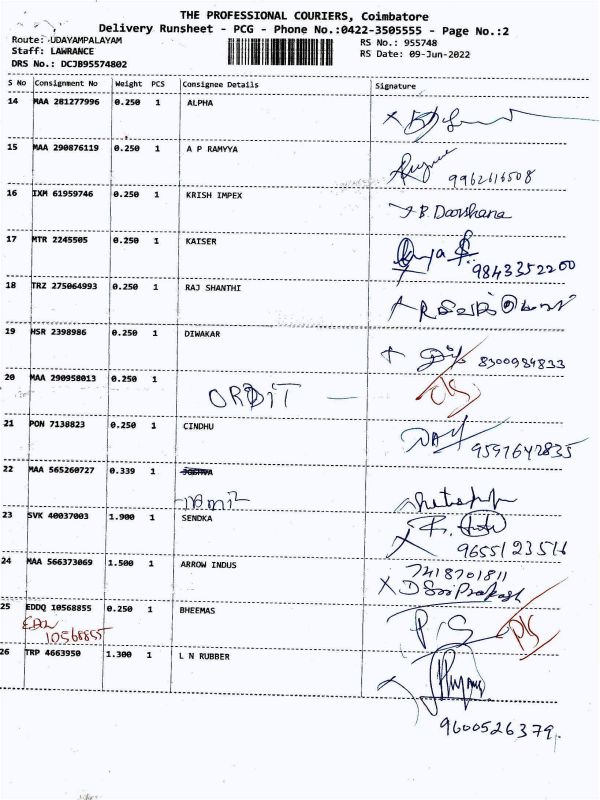 THE PROFESSIONAL COURIERS, Coimbatore
Delivery Runsheet - PCG - Phone No.:0422-3505555 - Page No.:2
Route: UDAYAMPALAYAM
RS No.: 955748
Staff: LAWRANCE
RS Date: 09-Jun-2022
DRS No.: DCJB95574802
S No Consignment No Weight PCS Consignee Details Signature
14 MAA 281277996 0.250 1 ALPHA
15 MAA 290876119 0.250 1 A P RAMYYA
9962616508
16 IXM 61959746 0.250 1 KRISH IMPEX
B. Darshana
17 MTR 2245505 0.250 1 KAISER
9843352200
18 TRZ 275064993 0.250 1 RAJ SHANTHI
19 HSR 2398986 0.250 1 DIWAKAR
8300984833
20 MAA 290958013 0.250 1 ORBIT
21 PON 7138823 0.250 1 CINDHU
9597647835
22 MAA 565260727 0.339 1
23 SVK 40037003 1.900 1 SENDKA
9655123516
24 MAA 566373069 1.500 1 ARROW INDUS
7418701811
25 EDDQ 10568855 0.250 1 BHEEMAS
P/S P/S
10568855
26 TRP 4663950 1.300 1 L N RUBBER
9600526379